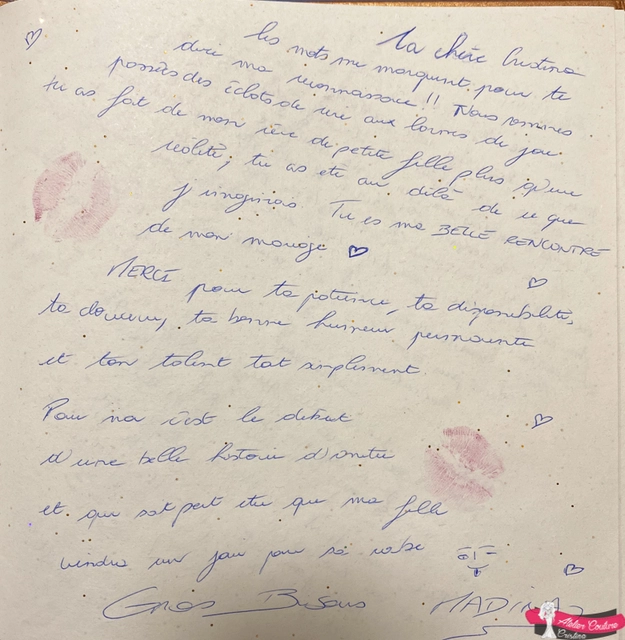 Ma chère Cristina
les mots me manquent pour te
dire ma reconnaissance !! Nous sommes
passés des éclats de rire aux larmes de joie
tu as fait de mon rêve de petite fille plus qu'une
réalité, tu as été au délà de ce que
j'imaginais Tu es ma BELLE RENCONTRE
de mon mariage
MERCI pour ta patience, ta disponibilité,
ta douceur, ta bonne humeur permanente
et ton talent tout simplement.
Pour moi c'est le début
d'une belle histoire d'amitié
et qui sait peut etre que ma fille
viendra un jour pour sa robe
Gros Bisous MADINA
Atelier Couture
Cristina